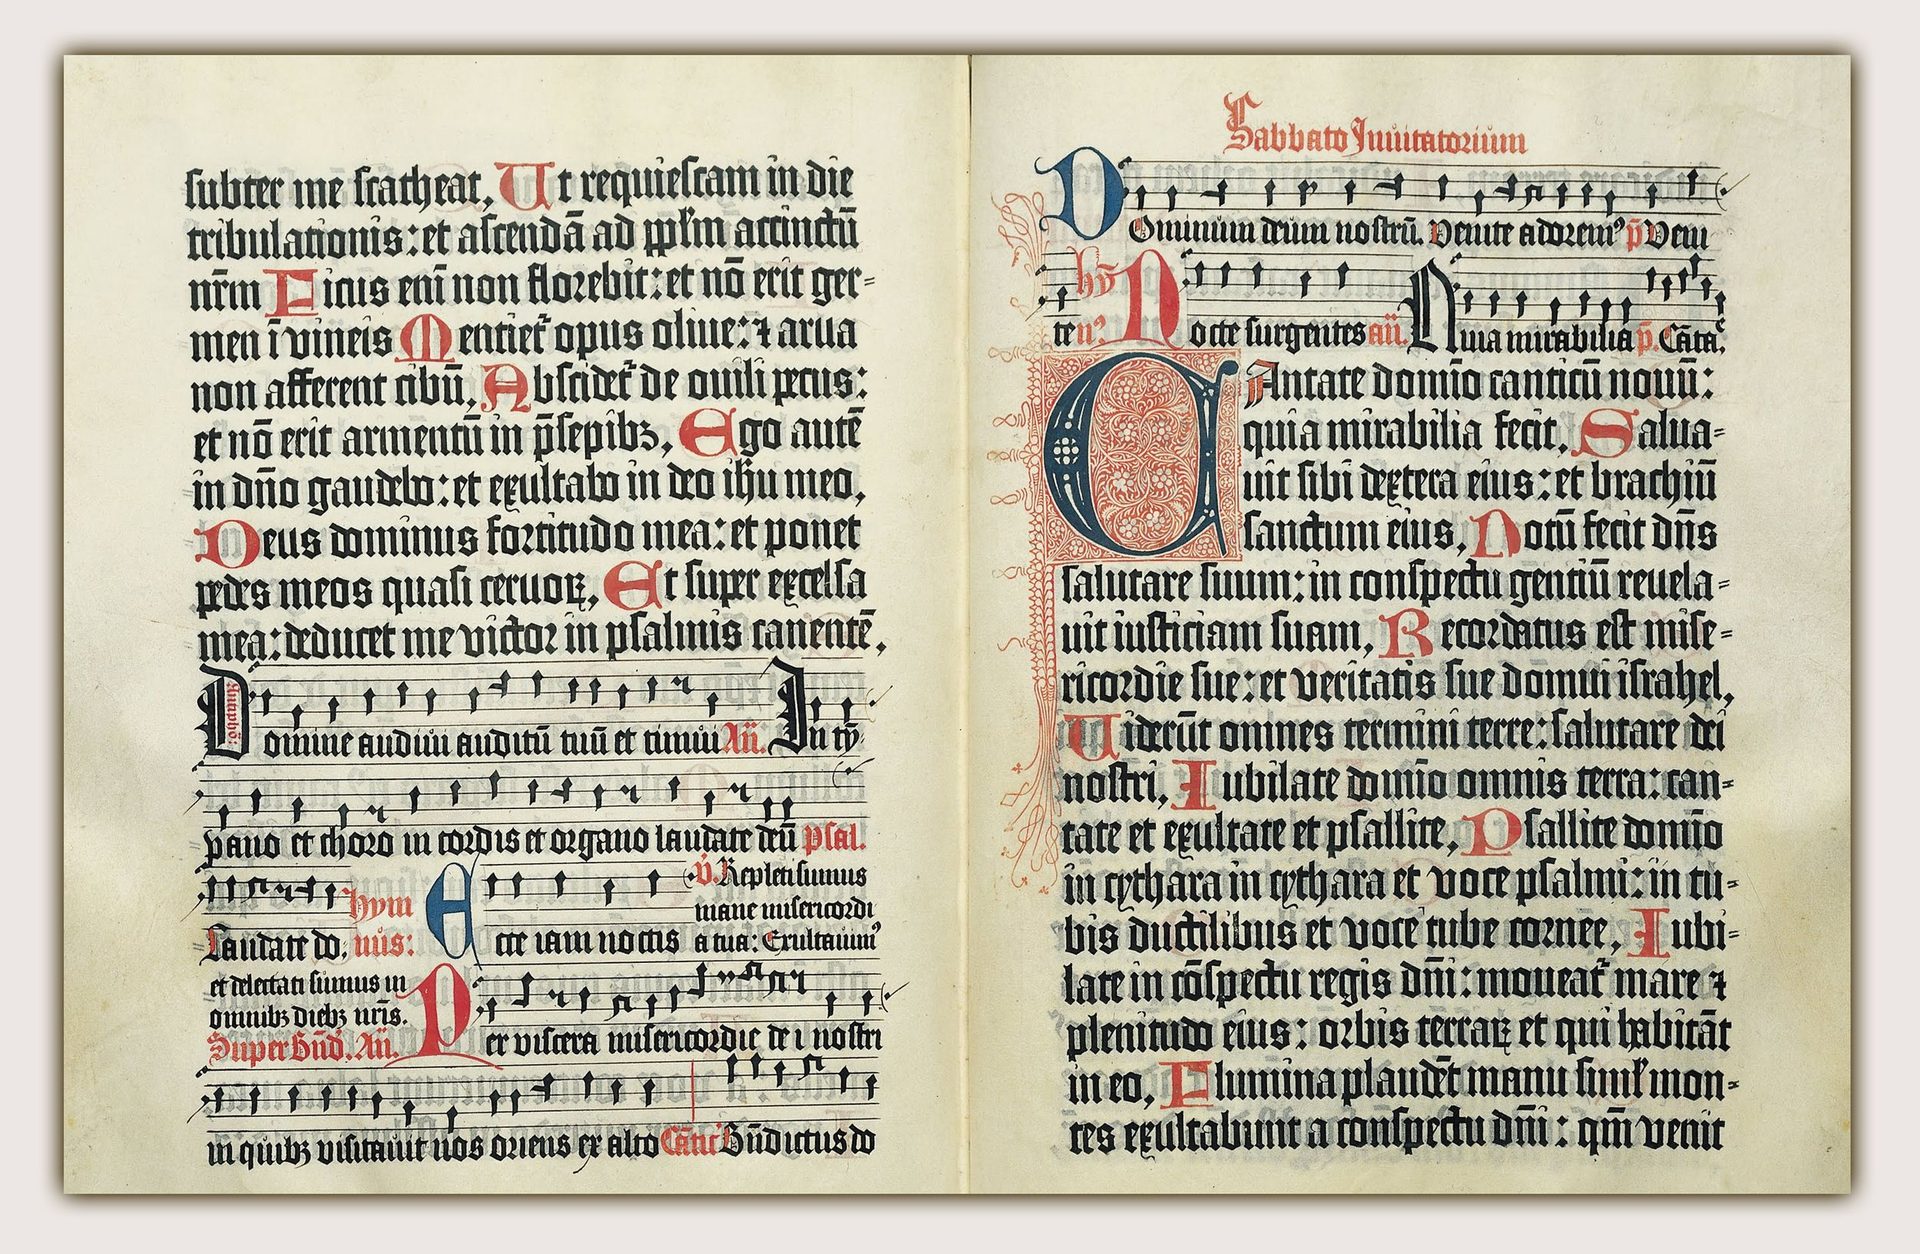 subter me scatheat, Ut requiescam in die
tribulationis: et ascendā ad pplm̄ accinctū
nr̄m Ficus eni non florebit: et nō erit ger=
men ī vineis Mentiet᷑ opus oliue: ⁊ arua
non afferent cibū, Abscidet᷑ de ouili pecus:
et nō erit armentū in p̄sepibꝫ, Ego autē
in dn̄o gaudebo: et exultabo in deo ihu meo,
Deus dominus fortitudo mea: et ponet
pedes meos quasi ceruoꝝ, Et super excelsa
mea: deducet me victor in psalmis canentē,
Antiphō:
Domine audiui auditū tuū et timui An̄. In ty=
pano et choro in cordis et organo laudate deū psal.
Laudate do: hymnus: Ecce iam noctis
v̄. Repleti sumus
mane misericordi
a tua: Exultauim⁹
et delectati sumus in
omnibꝫ diebꝫ nr̄is.
Super Bn̄d. An̄. Per viscera misericordie dei nostri
in quibꝫ visitauit nos oriens ex alto Cātic Bn̄dictus do
Sabbato Inuitatorium
Dominum deum nostrū. Venite adorem⁹ p̄ Veni
te n⁹. hȳ Nocte surgentes an̄. Quia mirabilia p̄. Cāta,
CAntate domīo canticū nouū:
quia mirabilia fecit, Salua=
uit sibi dextera eius: et brachiū
sanctum eius, Notū fecit dn̄s
salutare suum: in conspectu gentiū reuela=
uit iusticiam suam, Recordatus est mise=
ricordie sue: et veritatis sue domui israhel,
Uiderūt omnes termini terre: salutare dei
nostri, Iubilate domīo omnis terra: can=
tate et exultate et psallite, Psallite domīo
in cythara in cythara et voce psalmi: in tu=
bis ductilibus et voce tube cornee, Iubi=
late in cōspectu regis dn̄i: moueat᷑ mare ⁊
plenitudo eius: orbis terraꝝ et qui habitāt
in eo, Flumina plaudēt manu simł mon=
tes exultabunt a conspectu dn̄i: qm̄ venit